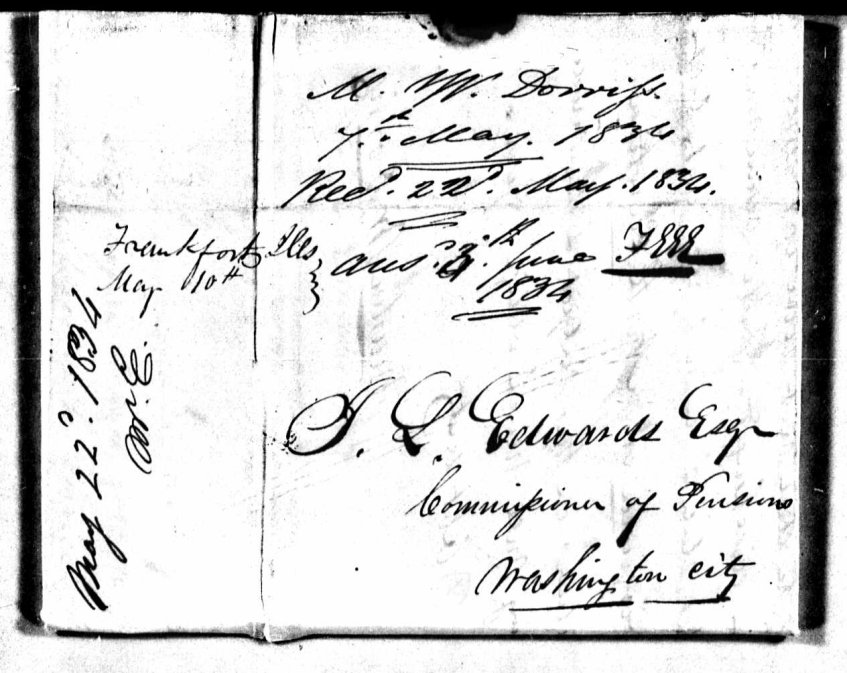 M. W. Dorriss.
7.th May. 1834
Recd. 22d. May. 1834.
Frankfort Ills
May 10th
ansd. June
1834
J. L. Edwards Esqr
Commissioner of Pensions
Washington city
May 22d. 1834